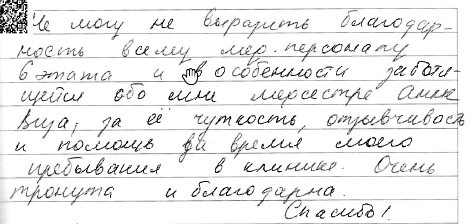 Не могу не выразить благодар-
ность всему мед. персоналу
6 этажа и в особенности заботя-
щейся обо мне медсестре Анне
за её чуткость, отзывчивость
и помощь за время моего
пребывания в клинике. Очень
тронута и благодарна.
Спасибо!